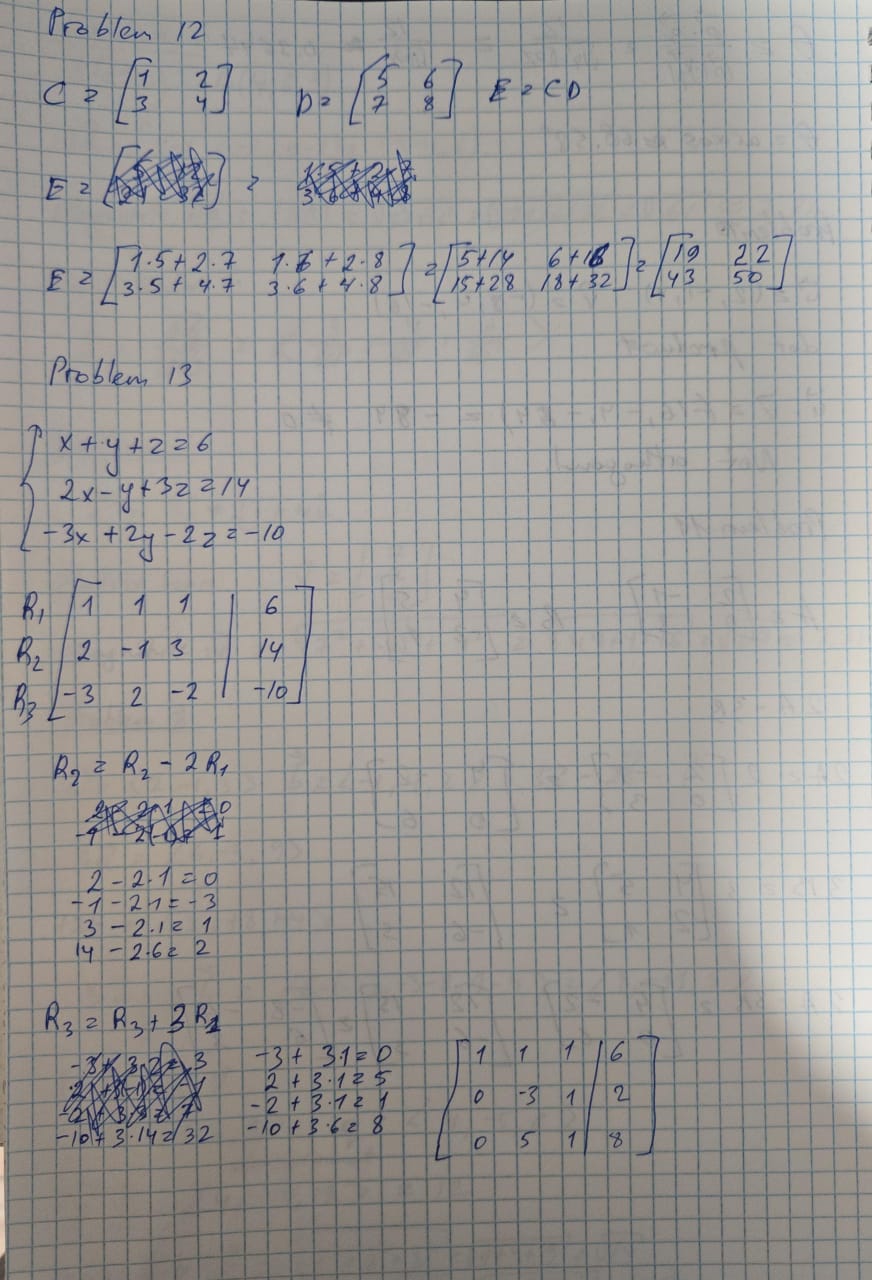 Problem 12
C = [1 2
3 4] D = [5 6
7 8] E = CD
E = [ ] =
E = [1·5+2·7 1·6+2·8
3·5+4·7 3·6+4·8] = [5+14 6+16
15+28 18+32] = [19 22
43 50]
Problem 13
{ x+y+z=6
2x-y+3z=14
-3x+2y-2z=-10
R1 [1 1 1 | 6]
R2 [2 -1 3 | 14]
R3 [-3 2 -2 | -10]
R2 = R2 - 2R1
2-2·1=0
-1-2·1=-3
3-2·1=1
14-2·6=2
R3 = R3+3R1
-3+3·1=0
2+3·1=5
-2+3·1=1
-10+3·14=32 -10+3·6=8
[1 1 1 | 6
0 -3 1 | 2
0 5 1 | 8]